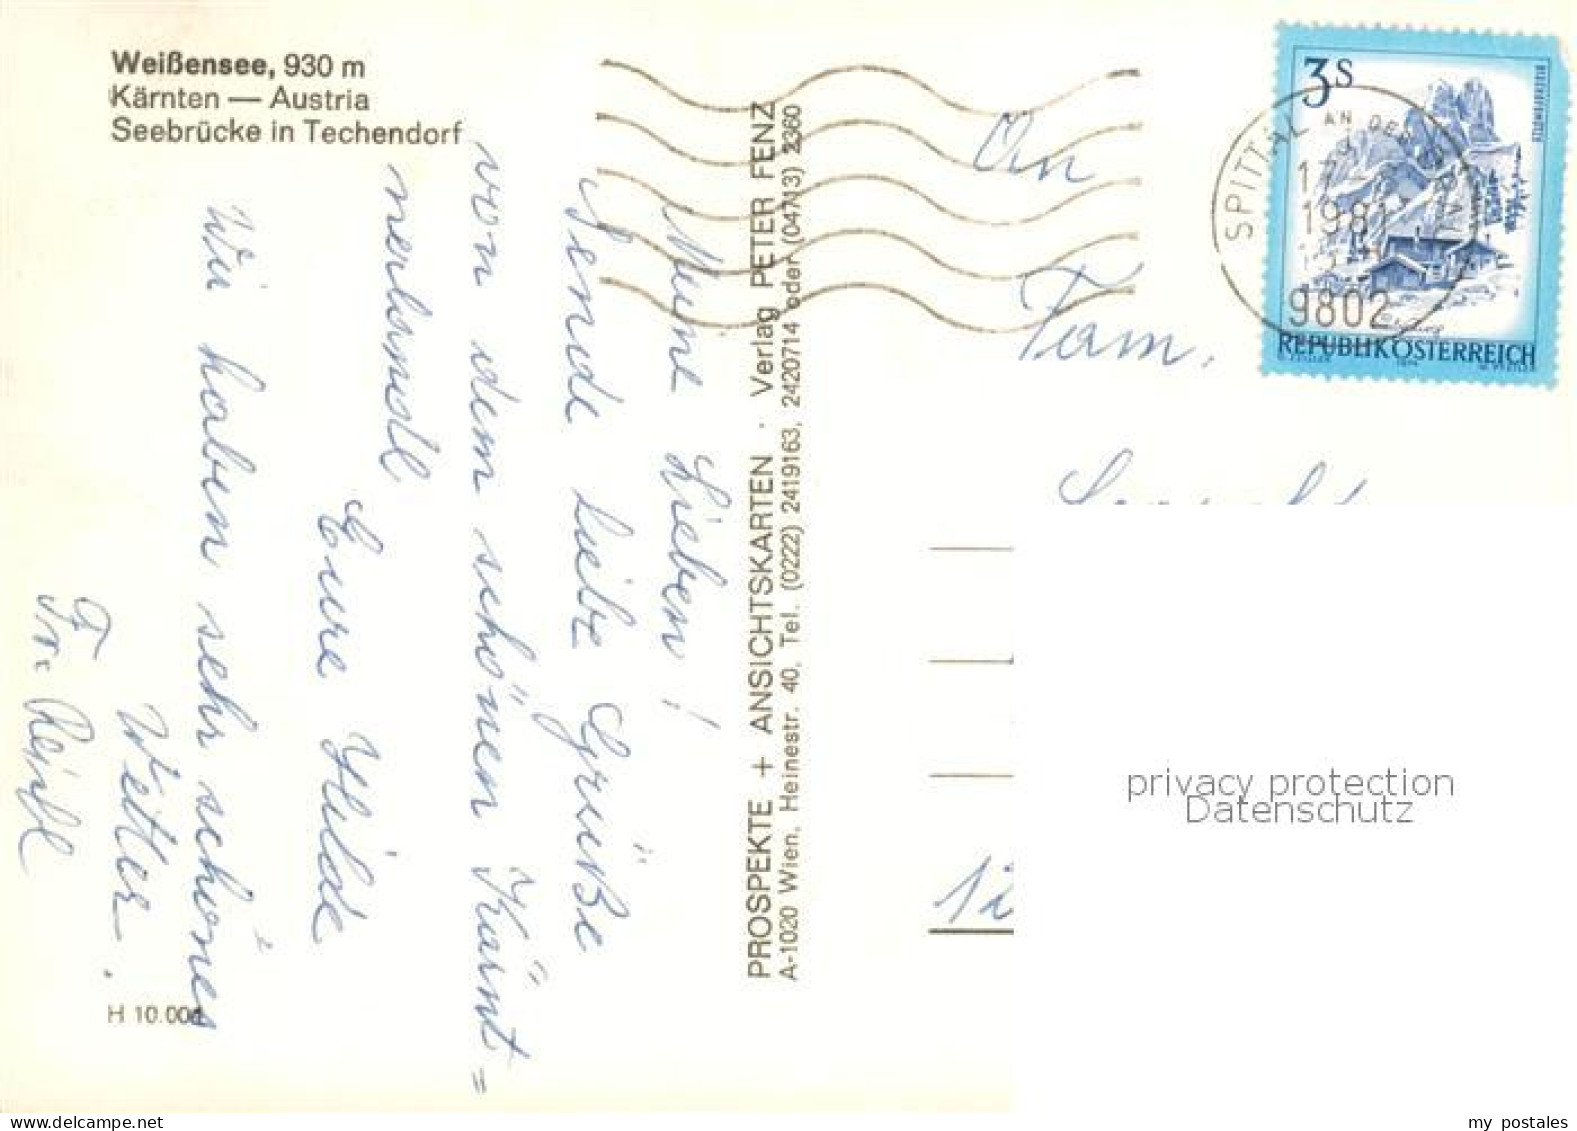 Weißensee, 930 m
Kärnten — Austria
Seebrücke in Techendorf
Meine Lieben!
Sende Liebe Grüße
von dem schönen Kärnt=
nerlandl
Eure Hilde
Wir haben sehr schönes
Wetter.
Fr.
H 10.004
PROSPEKTE + ANSICHTSKARTEN · Verlag PETER FENZ
A-1020 Wien, Heinestr. 40, Tel. (0222) 2419163, 2420714 oder (04713) 2360
An
Fam.
3S
REPUBLIK ÖSTERREICH
SPITTAL AN DER DRAU
1981
9802
privacy protection
Datenschutz
my postales